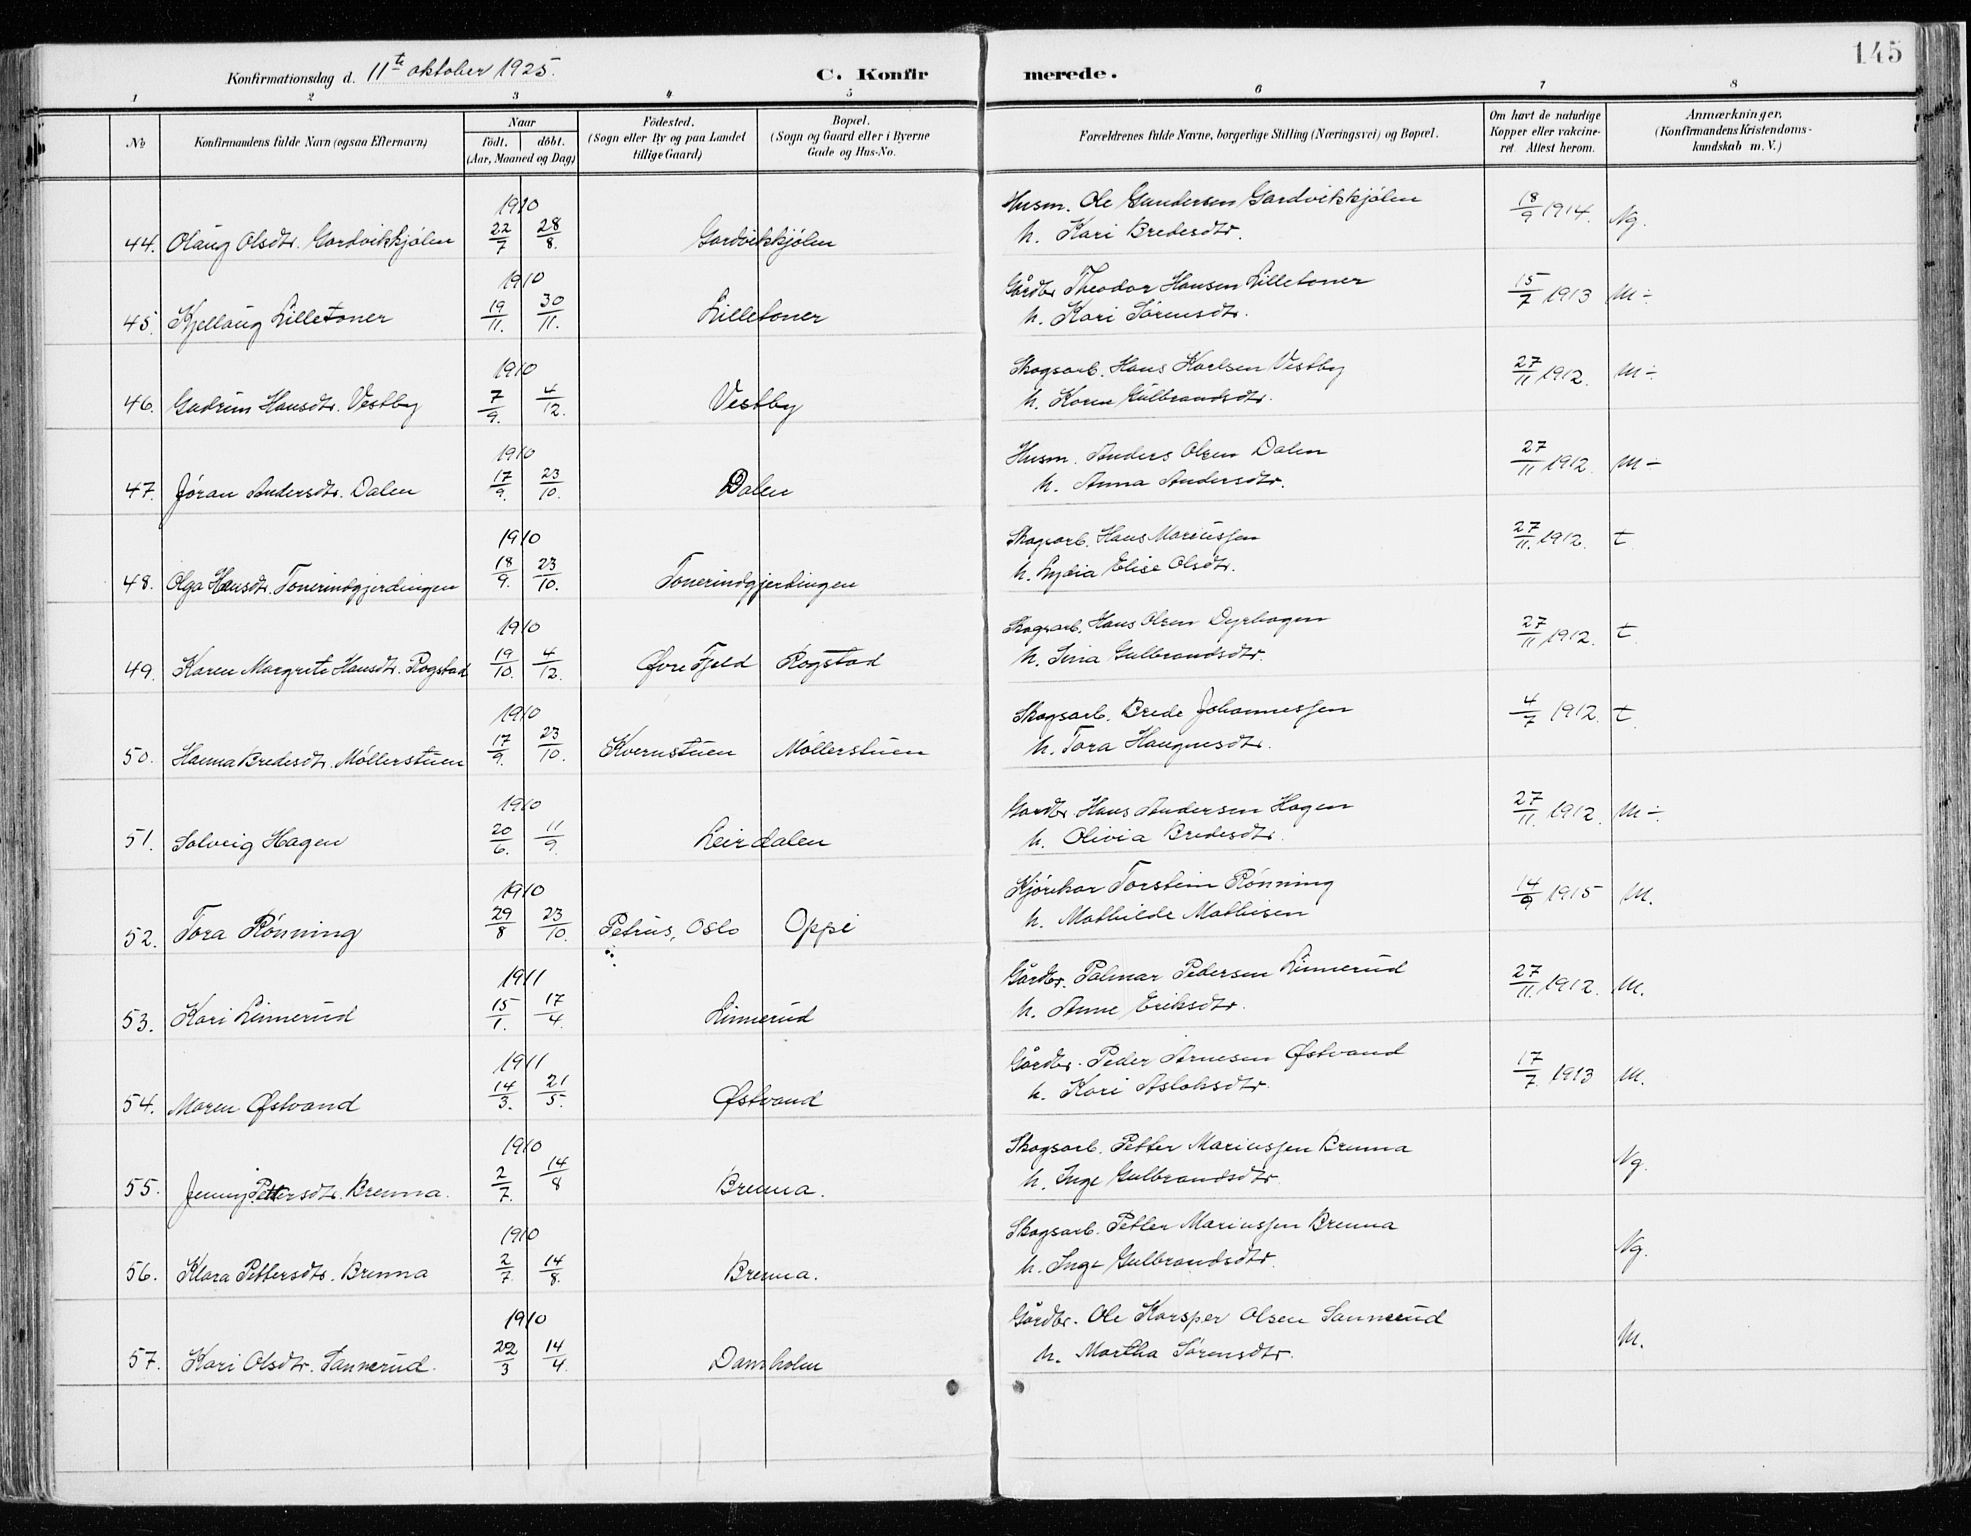 145
Konfirmationsdag d. 11te oktober 1925.
C. Konfirmerede.
1 2 3 4 5 6 7 8
No
Konfirmandens fulde Navn (ogsaa Efternavn)
Naar
født. døbt.
(Aar, Maaned og Dag)
Fødested.
(Sogn eller By og paa Landet
tillige Gaard)
Bopæl.
(Sogn og Gaard eller i Byerne
Gade og Hus-No.
Forældrenes fulde Navne, borgerlige Stilling (Næringsvei) og Bopæl.
Om havt de naturlige
Kopper eller vakcine-
ret. Attest herom.
Anmærkninger,
(Konfirmandens Kristendoms-
kundskab m. V.)
1910
44. Olaug Olsdtr. Gardvikkjølen 22/7 28/8. Gardvikkjølen
Husm. Ole Gundersen Gardvikkjølen
h. Kari Bredesdtr.
18/9 1914. Ng.
1910
45. Kjellaug Lilletoner 19/11. 30/11. Lilletoner
Gårdbr Theodor Hansen Lilletoner
h. Kari Sørensdtr.
15/7 1913 M÷
1910
46. Gudrun Hansdtr. Vestby 7/9. 4/12. Vestby
Skogsarb. Hans Karlsen Vestby
h. Karen Gulbrandsdtr.
27/11 1912. M÷.
1910
47. Jøran Andersdtr. Dalen 17/9. 23/10. Dalen
Husm. Anders Olsen Dalen
h. Anna Andersdtr.
27/11 1912. M÷
1910
48. Olga Hansdtr. Tonerindgjerdingen 18/9. 23/10. Tonerindgjerdingen
Skogsarb. Hans Mariussen
h. Lydia Elise Olsdtr.
27/11. 1912. t
1910
49. Karen Margrete Hansdtr. Rogstad 19/10. 4/12. Øvre Fjeld Rogstad
Skogsarb. Hans Olsen Dyrhagen
h. Lina Gulbrandsdtr.
27/11 1912. t.
1910
50. Hanna Bredesdtr. Møllerstuen 17/9. 23/10. Kvernstuen Møllerstuen
Skogsarb. Brede Johannessen
h. Tora Haagensdtr.
4/7 1912. t.
1910
51. Solveig Hagen 20/6. 11/9. Leirdalen
Gardbr. Hans Andersen Hagen
h. Olivia Bredesdtr.
27/11. 1912. M÷.
1910
52. Tora Rønning 29/8 23/10. Petrus, Oslo Oppi
Kjørekar Torstein Rønning
h. Mathilde Mathisen
14/9 1915 M.
1911
53. Kari Linnerud 15/1. 17/4. Linnerud
Gårdbr. Palmar Pedersen Linnerud
h. Anne Eriksdtr.
27/11. 1912. M.
1911
54. Maren Østvand 14/3. 21/5. Østvand
Gårdbr. Peder Arnesen Østvand
h. Kari Aslaksdtr.
17/7 1913 M.
1910
55. Jenny Pettersdtr. Brenna. 2/7. 14/8 Brenna.
Skogsarb. Petter Mariussen Brenna
h. Inga Gulbrandsdtr
Ng.
1910
56. Klara Pettersdtr. Brenna 2/7. 14/8. Brenna.
Skogsarb. Petter Mariussen Brenna
h. Inga Gulbrandsdtr.
Ng.
1910
57. Kari Olsdtr. Sannerud. 22/3 14/4. Damholen
Gårdbr. Ole Karsper Olsen Sannerud
h. Martha Sørensdtr.
M.